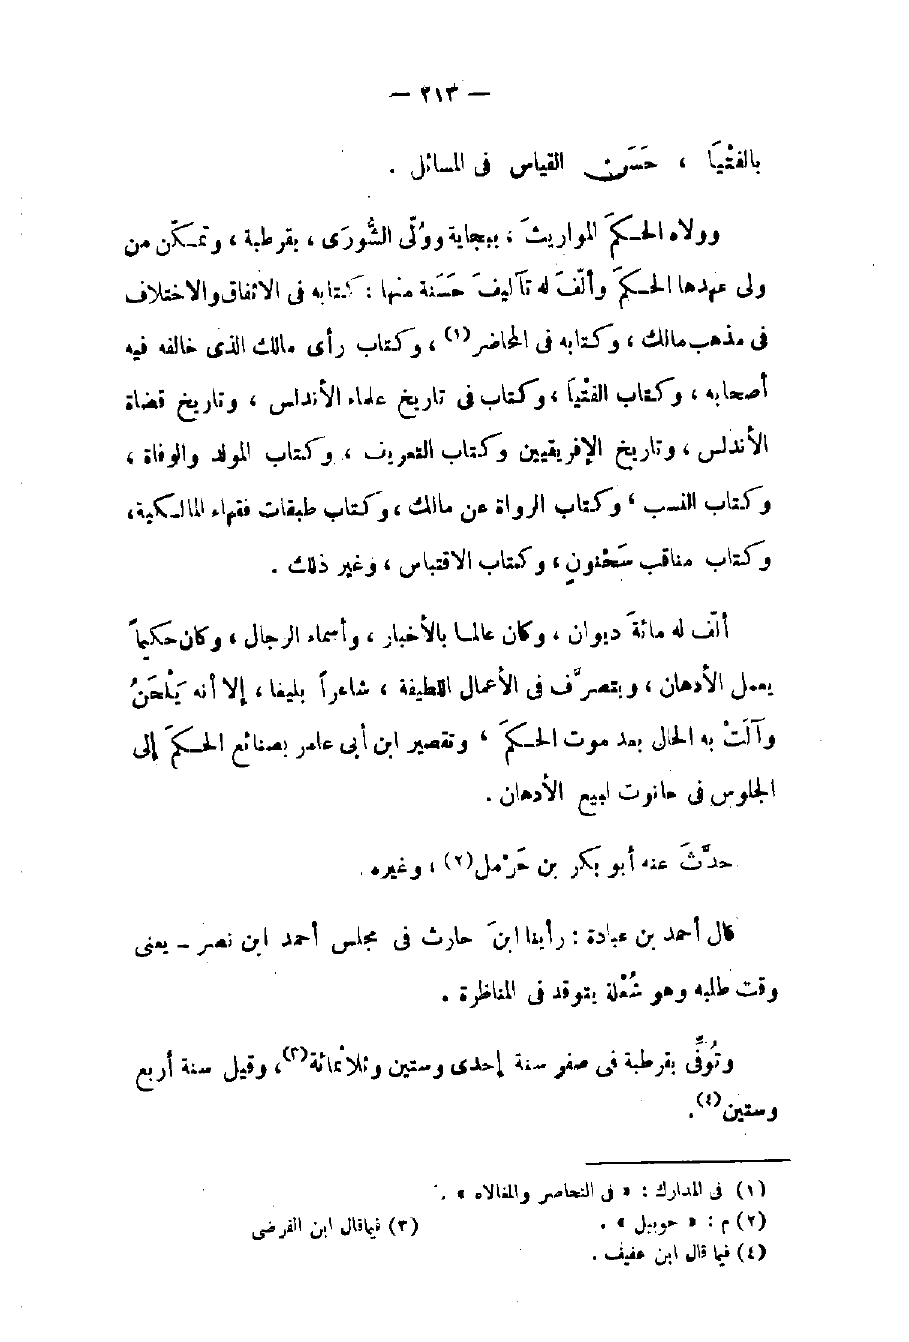 — ٢١٣ —
بالفتْيَا ، حَسَن القياس فى المسائل .
وولاه الحكمَ المواريث ، ببجاية وولّى الشُّورَى ، بقرطبة ، وتمكّن من
ولى عهدها الحكمَ وألّف له تآليفَ حَسَنة منها : كتابه فى الاتفاق والاختلاف
فى مذهب مالك ، وكتابه فى المحاضر(١) ، وكتاب رأى مالك الذى خالفه فيه
أصحابه ، وكتاب الفتْيَا ، وكتاب فى تاريخ علماء الأندلس ، وتاريخ قضاة
الأندلس ، وتاريخ الإفريقيين وكتاب التعريف ، وكتاب المولد والوفاة ،
وكتاب النسب ، وكتاب الرواة عن مالك ، وكتاب طبقات فقهاء المالكية ،
وكتاب مناقب سَحْنونٍ ، وكتاب الاقتباس ، وغير ذلك .
ألّف له مائةَ ديوان ، وكان عالما بالأخبار ، وأسماء الرجال ، وكان حكيماً
يعمل الأدهان ، ويتصرَّف فى الأعمال اللطيفة ، شاعراً بليغا ، إلا أنه يَلْحَنُ
وآلَتْ به الحال بعد موت الحكمَ ، وتقصير ابن أبى عامر بصنائع الحكمَ إلى
الجلوس فى حانوت لبيع الأدهان .
حدَّثَ عنه أبو بكر بن حَرْمل(٢) ، وغيره .
قال أحمد بن عبادة : رأينا ابنَ حارث فى مجلس أحمد ابن نصر ـ يعنى
وقت طلبه وهو شُعْلة يتوقد فى المناظرة .
وتُوفِّى بقرطبة فى صفر سنة إحدى وستين وثلاثمائة(٣) ، وقيل سنة أربع
وستين(٤).
(١) فى المدارك : « فى التحاصر والمغالاه » .
(٢) م : « حوبيل » .    (٣) فيما قال ابن الفرضى
(٤) فيما قال ابن عفيف .